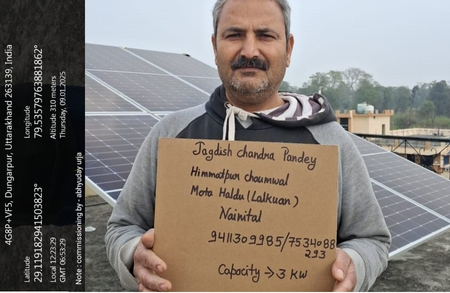 4G8P+VF5, Dungarpur, Uttarakhand 263139, India
Latitude
29.119182941503823°
Longitude
79.53579763881862°
Local 12:23:29
GMT 06:53:29
Altitude 310 meters
Thursday, 09.01.2025
Note : commissioning by - abhyuday urja
Jagdish chandra Pandey
Himmatpur choumwal
Mota Haldu (Lalkuan)
Nainital
9411309985/7534088
293
Capacity → 3 KW